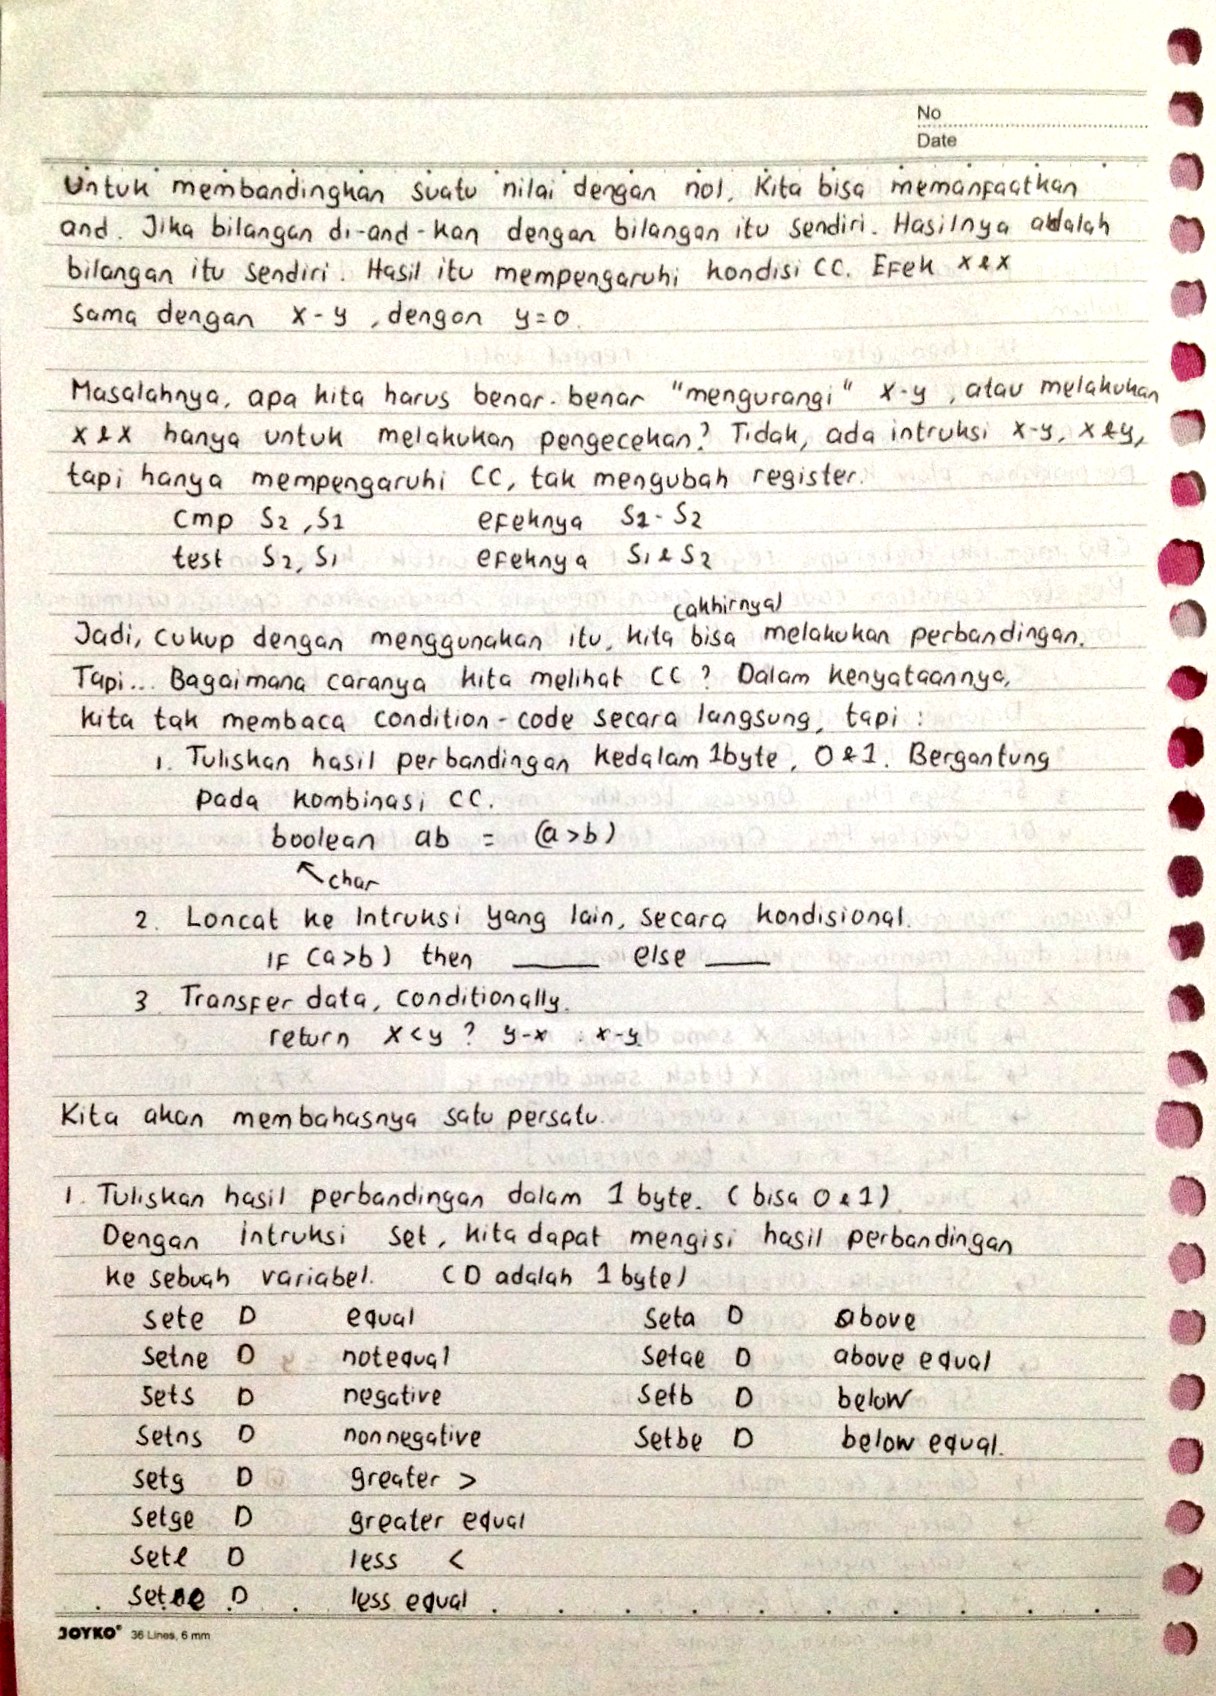 No
Date
Untuk membandingkan suatu nilai dengan nol, Kita bisa memanfaatkan
and. Jika bilangan di-and-kan dengan bilangan itu sendiri. Hasilnya adalah
bilangan itu sendiri. Hasil itu mempengaruhi kondisi CC. Efek x&x
sama dengan x-y, dengan y=0.
Masalahnya, apa kita harus benar-benar "mengurangi" x-y, atau melakukan
x&x hanya untuk melakukan pengecekan? Tidak, ada intruksi x-y, x&y,
tapi hanya mempengaruhi CC, tak mengubah register.
cmp S2, S1 efeknya S1-S2
test S2, S1 efeknya S1&S2
(akhirnya)
Jadi, cukup dengan menggunakan itu, kita bisa melakukan perbandingan.
Tapi... Bagaimana caranya kita melihat CC? Dalam kenyataannya,
kita tak membaca condition-code secara langsung, tapi:
1. Tuliskan hasil perbandingan kedalam 1byte, 0&1. Bergantung
pada kombinasi CC.
boolean ab = (a>b)
↖char
2. Loncat ke Intruksi yang lain, secara kondisional.
if (a>b) then ____ else ____
3. Transfer data, conditionally.
return x<y ? y-x : x-y
Kita akan membahasnya satu persatu.
1. Tuliskan hasil perbandingan dalam 1 byte. (bisa 0&1)
Dengan intruksi set, kita dapat mengisi hasil perbandingan
ke sebuah variabel. (D adalah 1 byte)
sete D equal seta D above
setne D notequal setae D above equal
sets D negative setb D below
setns D nonnegative setbe D below equal.
setg D greater >
setge D greater equal
setl D less <
setle D less equal
JOYKO® 36 Lines, 6 mm